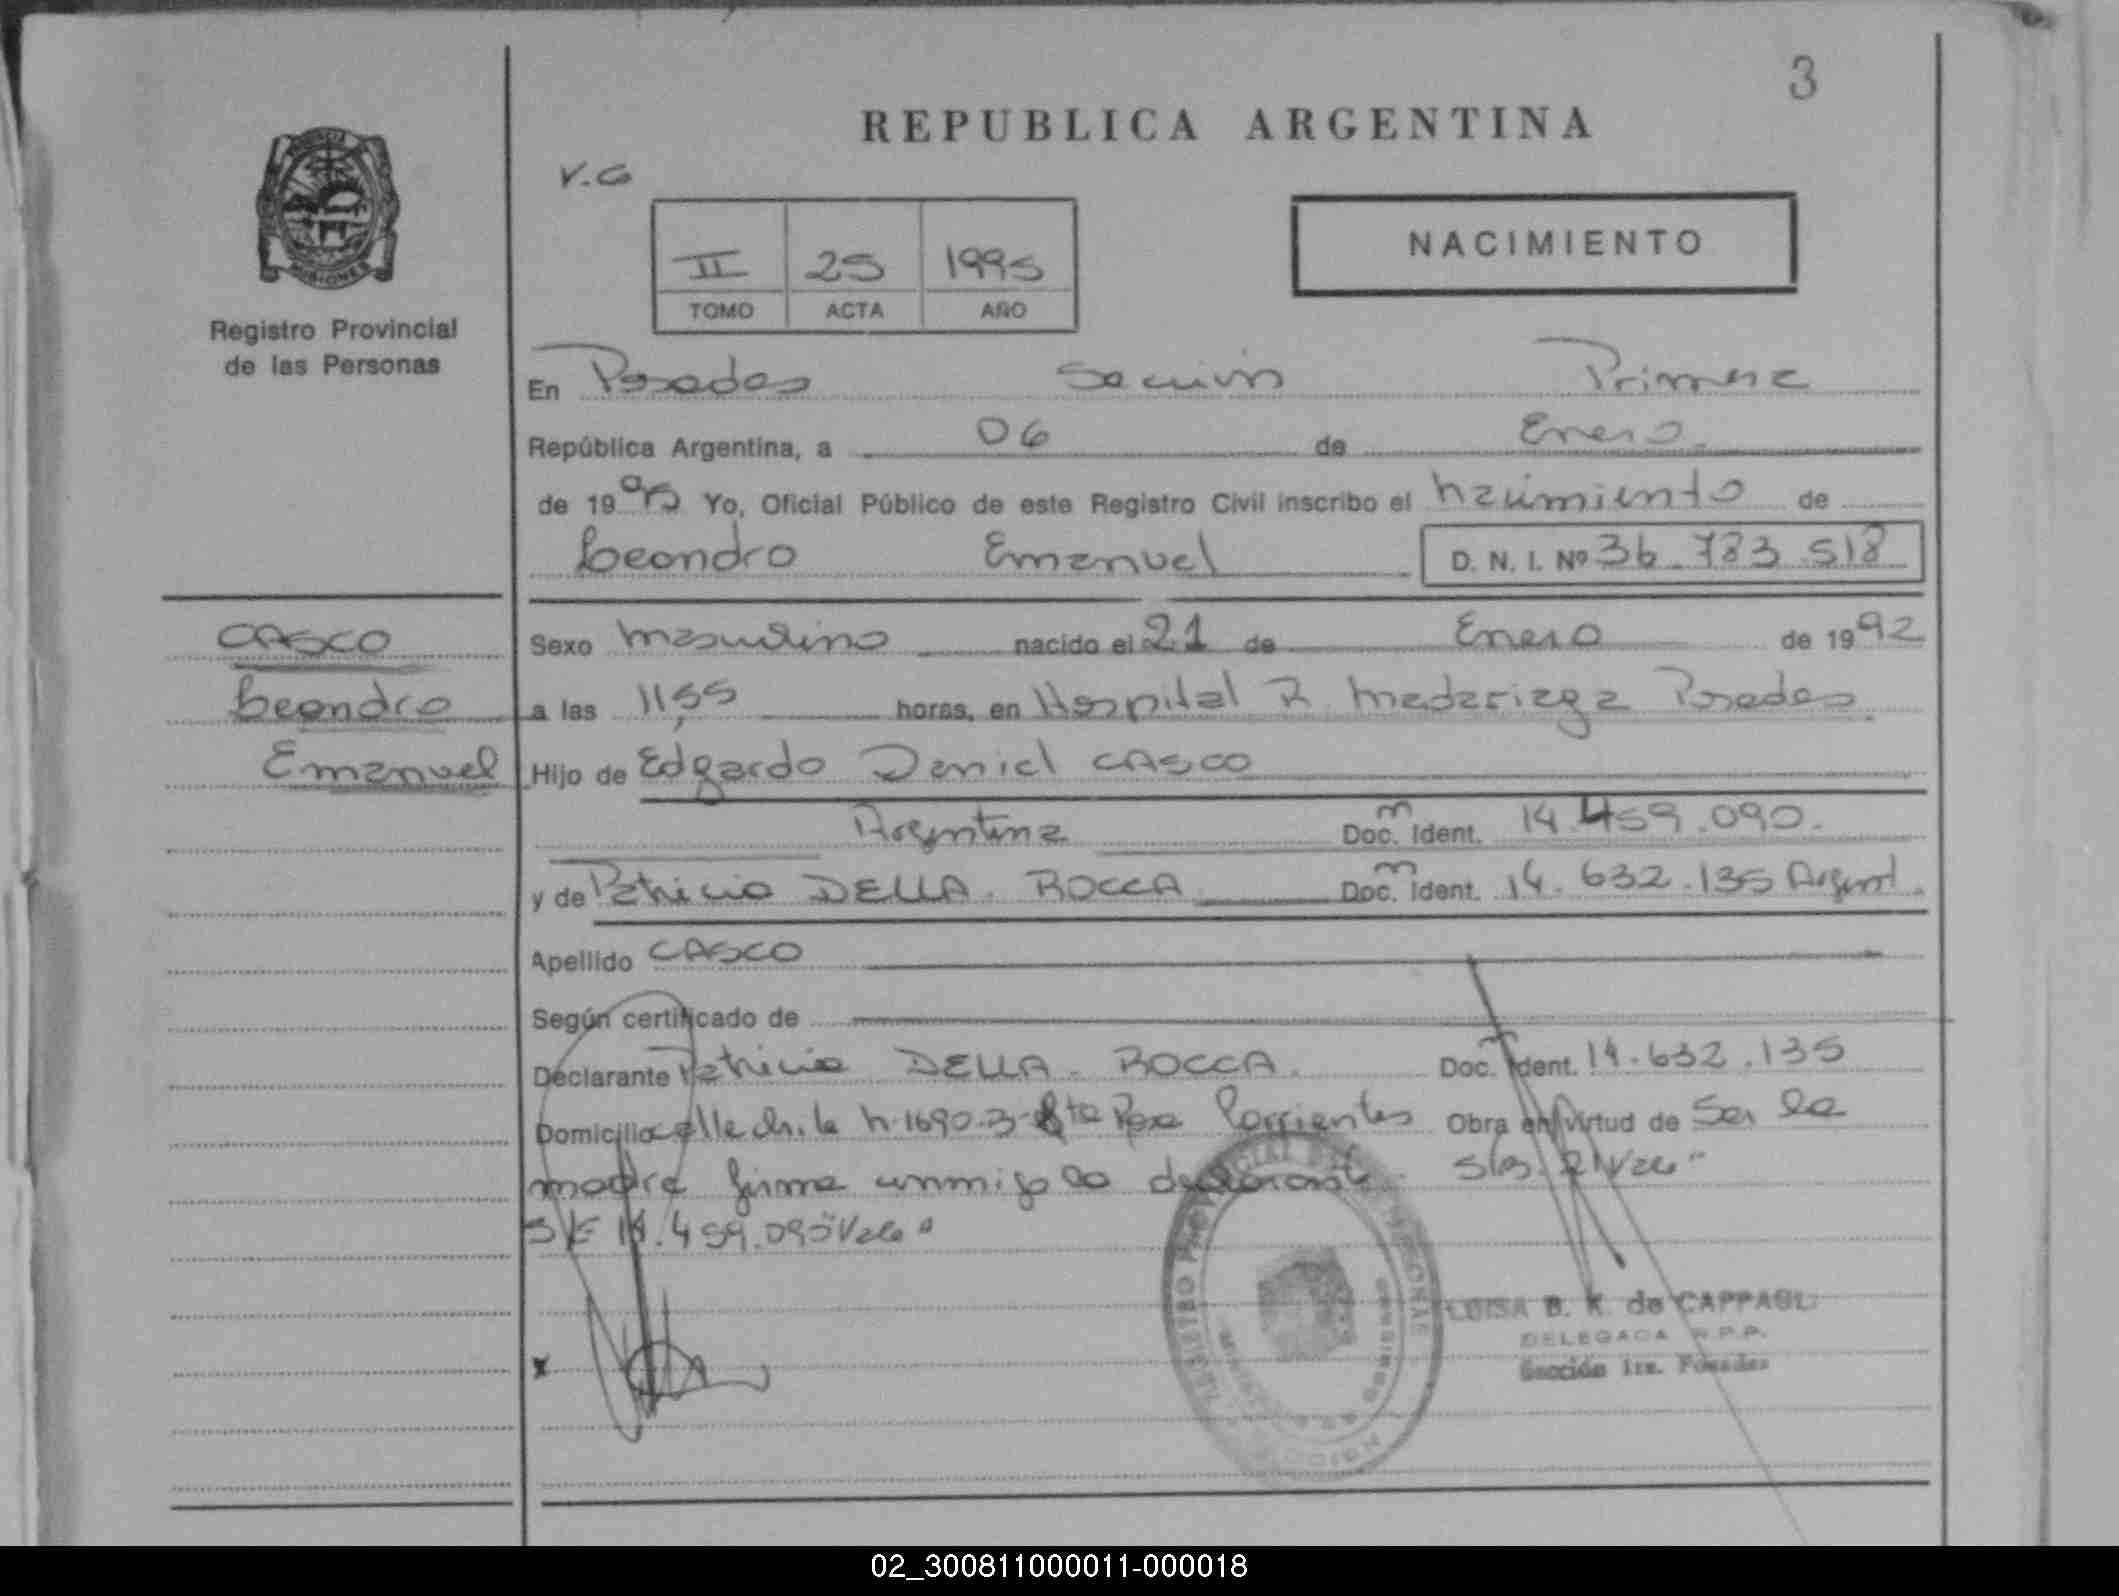 3
REPUBLICA ARGENTINA
V.G
NACIMIENTO
II 25 1995
TOMO ACTA AÑO
MISIONES
Registro Provincial
de las Personas
En Posadas Sección Primera
República Argentina, a 06 de Enero.
de 1995 Yo, Oficial Público de este Registro Civil inscribo el nacimiento de
Leandro Emanuel D. N. I. Nº 36.783.518
CASCO
Leandro
Emanuel
Sexo masculino nacido el 21 de Enero de 1992
a las 11,55 horas, en Hospital R. Madariaga Posadas.
Hijo de Edgardo Daniel CASCO
Argentina Doc. Ident. 14.459.090.
y de Patricia DELLA. ROCCA Doc. Ident. 14.632.135 Argent.
Apellido CASCO
Según certificado de
Declarante Patricia DELLA. ROCCA. Doc. Ident. 14.632.135
Domicilio calle Chile n. 1690.3- Sta Rosa Corrientes Obra en virtud de Ser la
madre firma conmigo la declarante. S/B. 21 Vale"
S/E 14.459.090 "Vale"
x
LUISA B. K. de CAPPAGLI
DELEGADA R.P.P.
Sección 1ra. Posadas
02_300811000011-000018